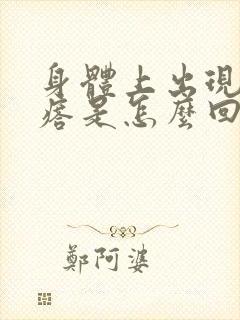 身體上出現
痞是怎麼回
鄭阿婆